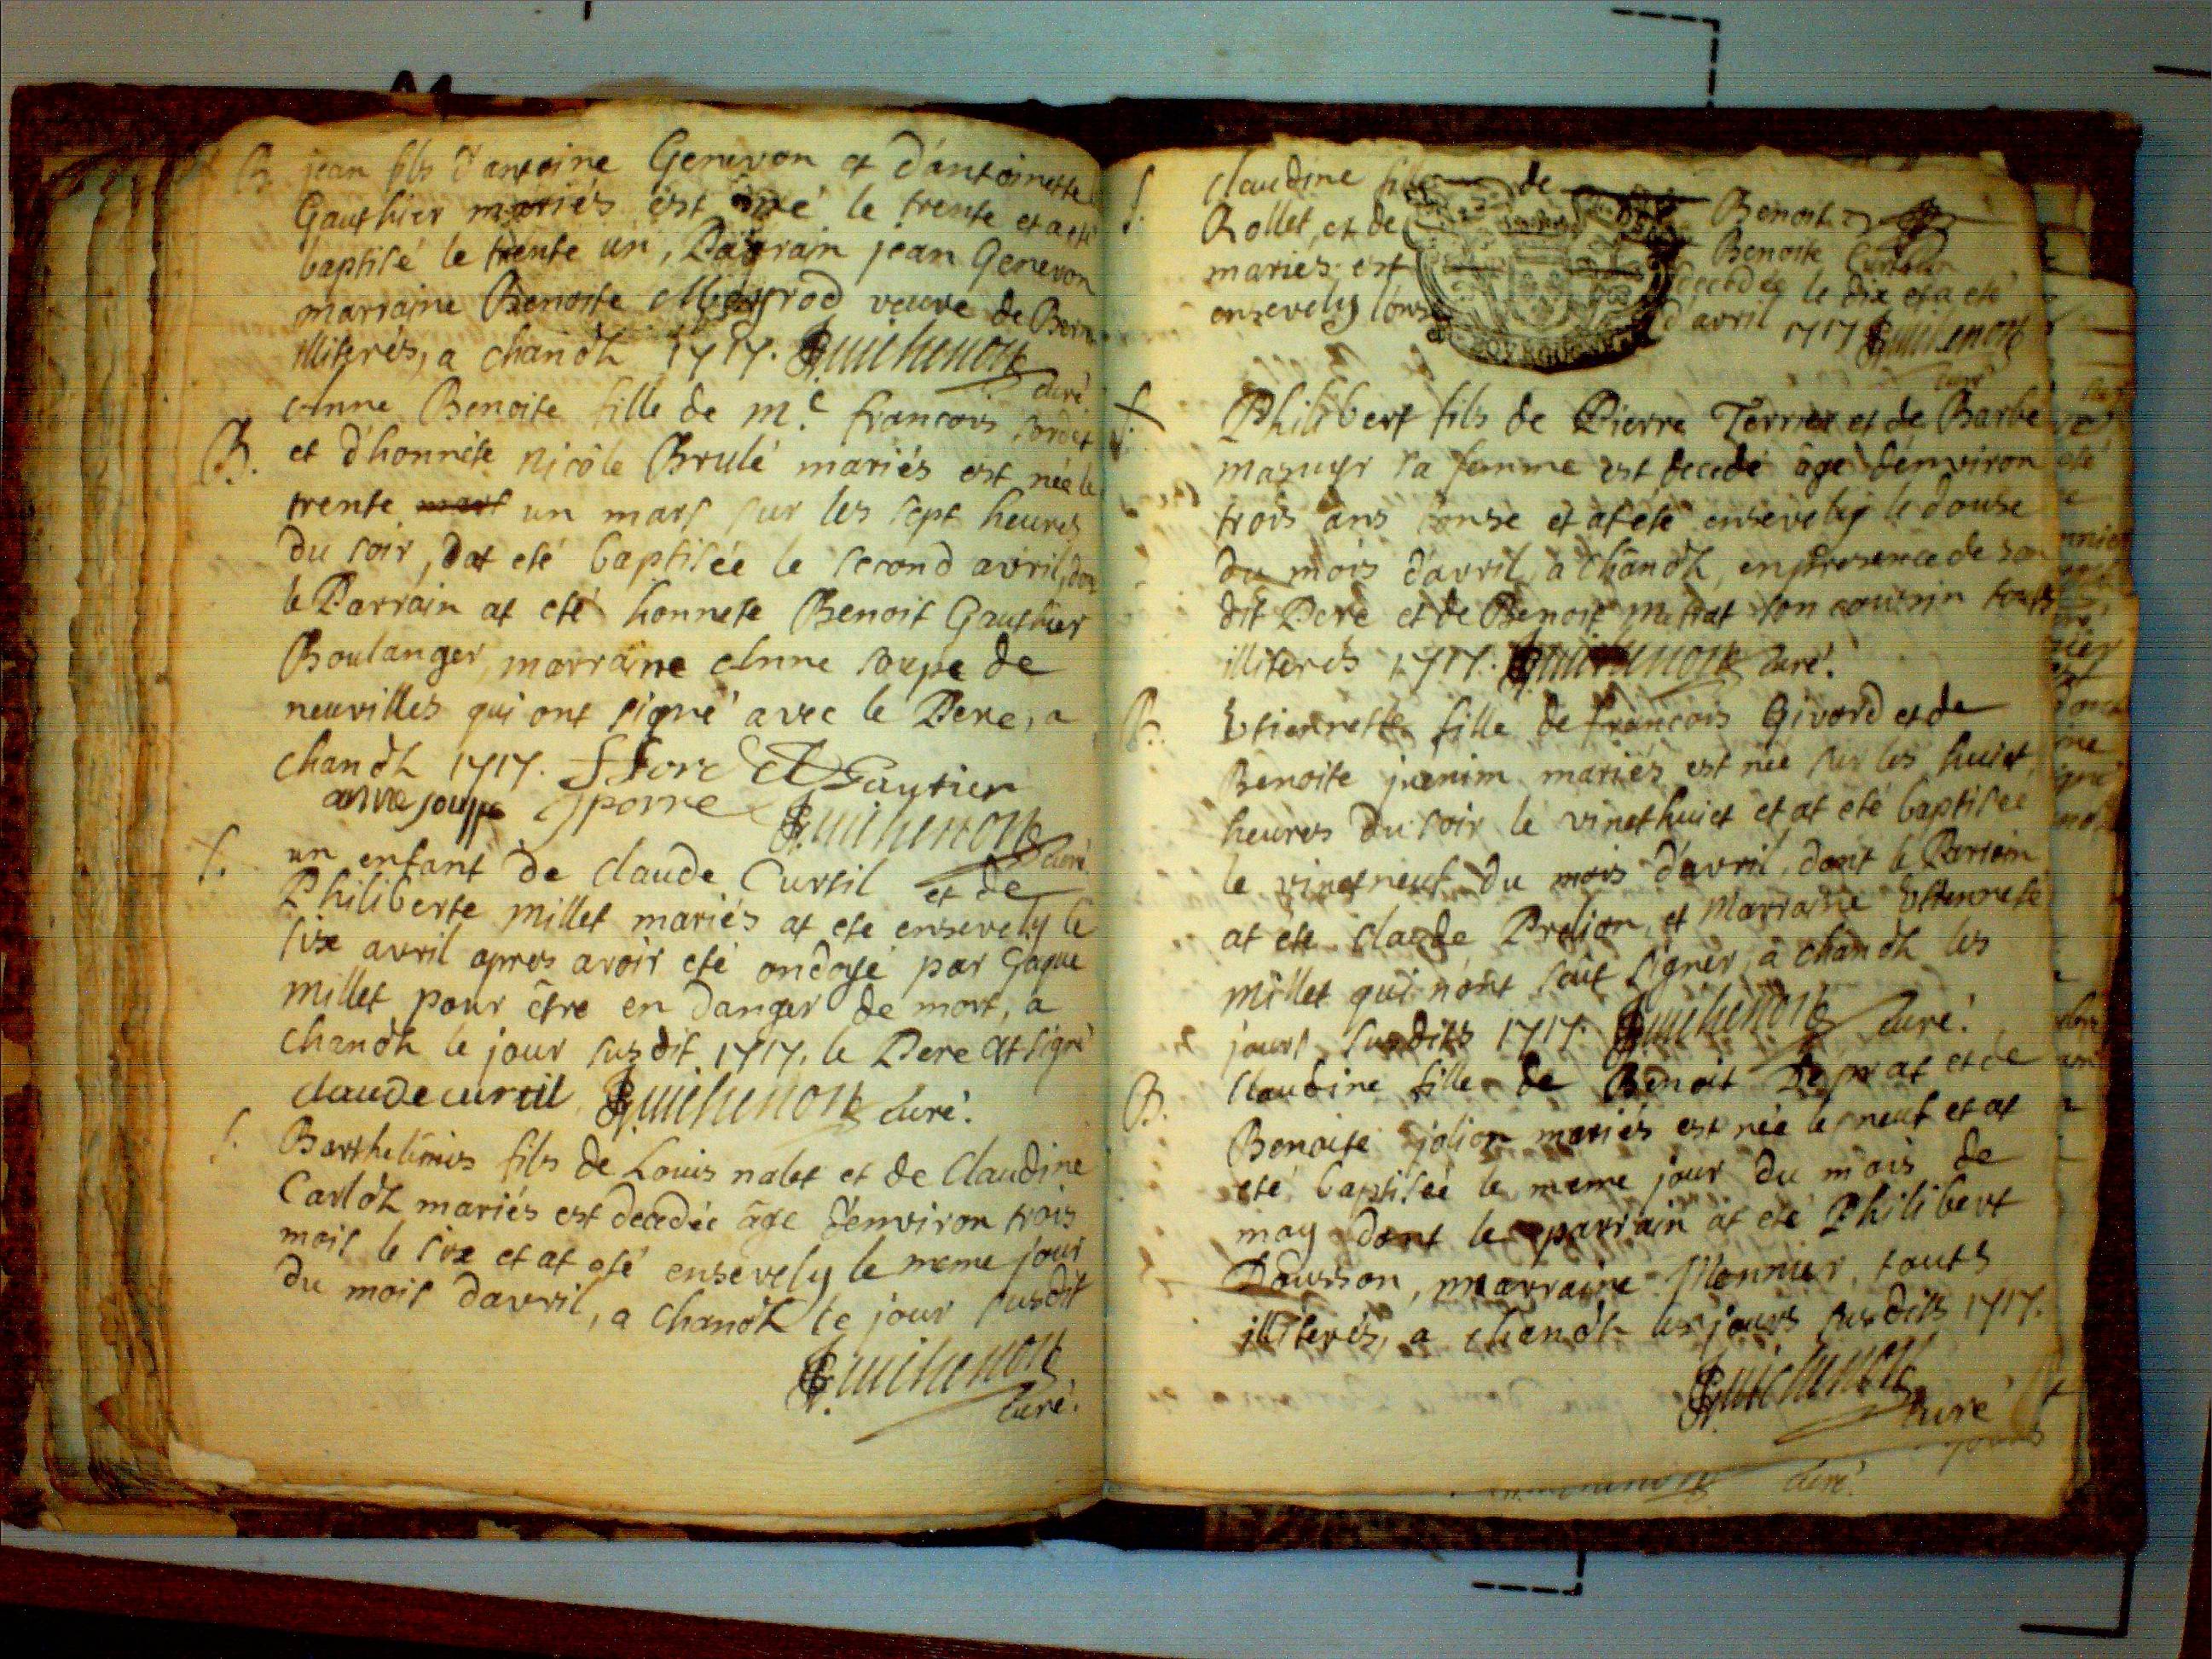 B. jean fils d'antoine Genevon et d'antoinette
Gauthier mariés est né le trente et a eté
baptisé le trente un, Parrain jean Genevon
marraine Benoite veuve de
illiterés, a chanôz 1717. Guichenon
curé
B. Anne Benoite fille de me. francois
et d'honnête nicôle Brulé mariés est née le
trente mars un mars sur les sept heures
du soir, at eté baptisée le second avril, dont
le Parrain at eté honnete Benoit Gauthier
Boulanger, marraine Anne soupe de
neuvilles qui ont signé avec le Pere, a
chanôz 1717. Gautier
anne souppe
Guichenon curé
S. un enfant de claude Curtil et de
Philiberte millet mariés at eté ensevely le
six avril apres avoir eté ondoyé par
millet pour être en danger de mort, a
chanôz le jour susdit 1717. le Pere at signé
claude curtil Guichenon curé.
S. Barthelémis fils de Louis nalet et de Claudine
Carlôz mariés est decedée âge d'environ trois
mois le six et at eté ensevely le meme jour
du mois d'avril, a chanôz le jour susdit
Guichenon
curé.
S. claudine fille de Benoit
Rollet, et de Benoite
mariés est decedée le dix et a eté
ensevely l'onse d'avril 1717 Guichenon
curé
S. Philibert fils de Pierre Terrier et de Barbe
mazuyr sa femme est decedé âgé d'environ
trois ans l'onse et at eté ensevely le douse
du mois d'avril, a chanôz, en presence de son
dit Pere et de Benoit metrat son cousin touts
illiterés 1717. Guichenon curé.
B. Etiennette fille de francois Givord et de
Benoite mariés est née sur les huict
heures du soir le vinethuict et at eté baptisée
le vinetneuf du mois d'avril, dont le Parrain
at eté claude Prelion, et Marraine Ettiennete
millet qui n'ont sçut signer, a chanôz les
jours susdits 1717. Guichenon curé.
B. Claudine fille de Benoit Deprat et de
Benoite jolion mariés est née le neuf et at
eté baptisée le meme jour du mois de
may dont le parrain at eté Philibert
marraine Monnier, touts
illiterés, a chanôz les jours susdits 1717.
Guichenon
curé
curé.